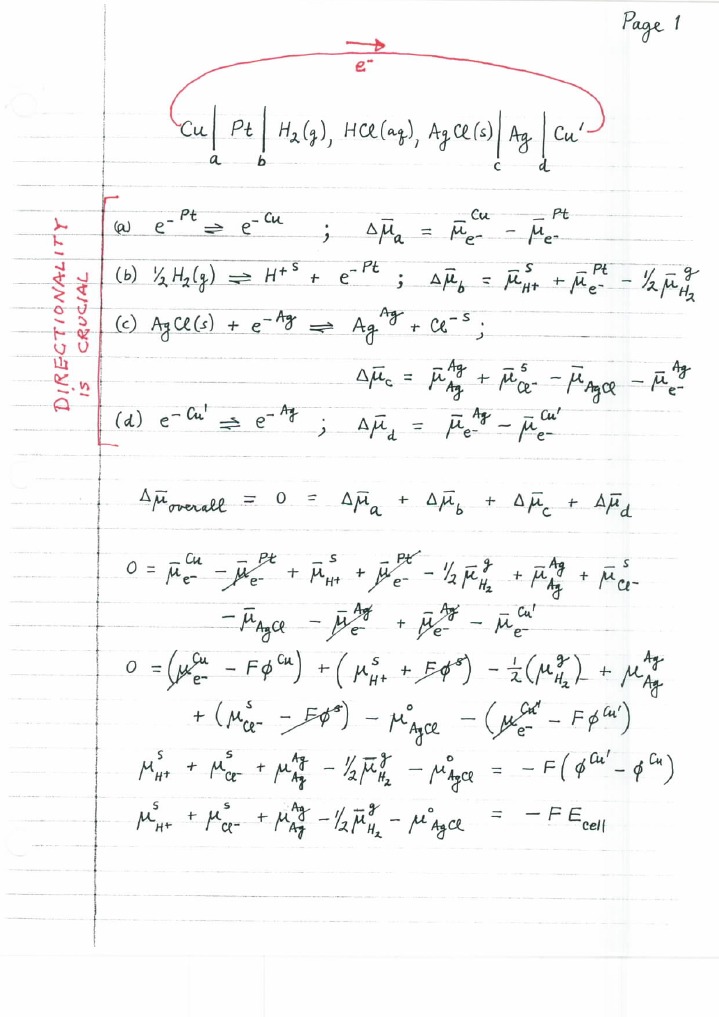 Page 1
e⁻
Cu | Pt | H₂(g), HCl(aq), AgCl(s) | Ag | Cu'
a b c d
DIRECTIONALITY
IS CRUCIAL
(a) e⁻ ᴾᵗ ⇌ e⁻ ᶜᵘ ; Δμ̄_a = μ̄_{e⁻}^{Cu} − μ̄_{e⁻}^{Pt}
(b) ½ H₂(g) ⇌ H⁺ˢ + e⁻ ᴾᵗ ; Δμ̄_b = μ̄_{H⁺}^{s} + μ̄_{e⁻}^{Pt} − ½ μ̄_{H₂}^{g}
(c) AgCl(s) + e⁻ ᴬᵍ ⇌ Ag^{Ag} + Cl⁻ˢ ;
Δμ̄_c = μ̄_{Ag}^{Ag} + μ̄_{Cl⁻}^{s} − μ̄_{AgCl} − μ̄_{e⁻}^{Ag}
(d) e⁻ ᶜᵘ' ⇌ e⁻ ᴬᵍ ; Δμ̄_d = μ̄_{e⁻}^{Ag} − μ̄_{e⁻}^{Cu'}
Δμ̄_{overall} = 0 = Δμ̄_a + Δμ̄_b + Δμ̄_c + Δμ̄_d
0 = μ̄_{e⁻}^{Cu} − μ̄_{e⁻}^{Pt} + μ̄_{H⁺}^{s} + μ̄_{e⁻}^{Pt} − ½ μ̄_{H₂}^{g} + μ̄_{Ag}^{Ag} + μ̄_{Cl⁻}^{s}
− μ̄_{AgCl} − μ̄_{e⁻}^{Ag} + μ̄_{e⁻}^{Ag} − μ̄_{e⁻}^{Cu'}
0 = (μ_{e⁻}^{Cu} − Fφ^{Cu}) + (μ_{H⁺}^{s} + Fφ^{s}) − ½(μ_{H₂}^{g}) + μ_{Ag}^{Ag}
+ (μ_{Cl⁻}^{s} − Fφ^{s}) − μ°_{AgCl} − (μ_{e⁻}^{Cu'} − Fφ^{Cu'})
μ_{H⁺}^{s} + μ_{Cl⁻}^{s} + μ_{Ag}^{Ag} − ½ μ̄_{H₂}^{g} − μ°_{AgCl} = − F(φ^{Cu'} − φ^{Cu})
μ_{H⁺}^{s} + μ_{Cl⁻}^{s} + μ_{Ag}^{Ag} − ½ μ̄_{H₂}^{g} − μ°_{AgCl} = − F E_{cell}